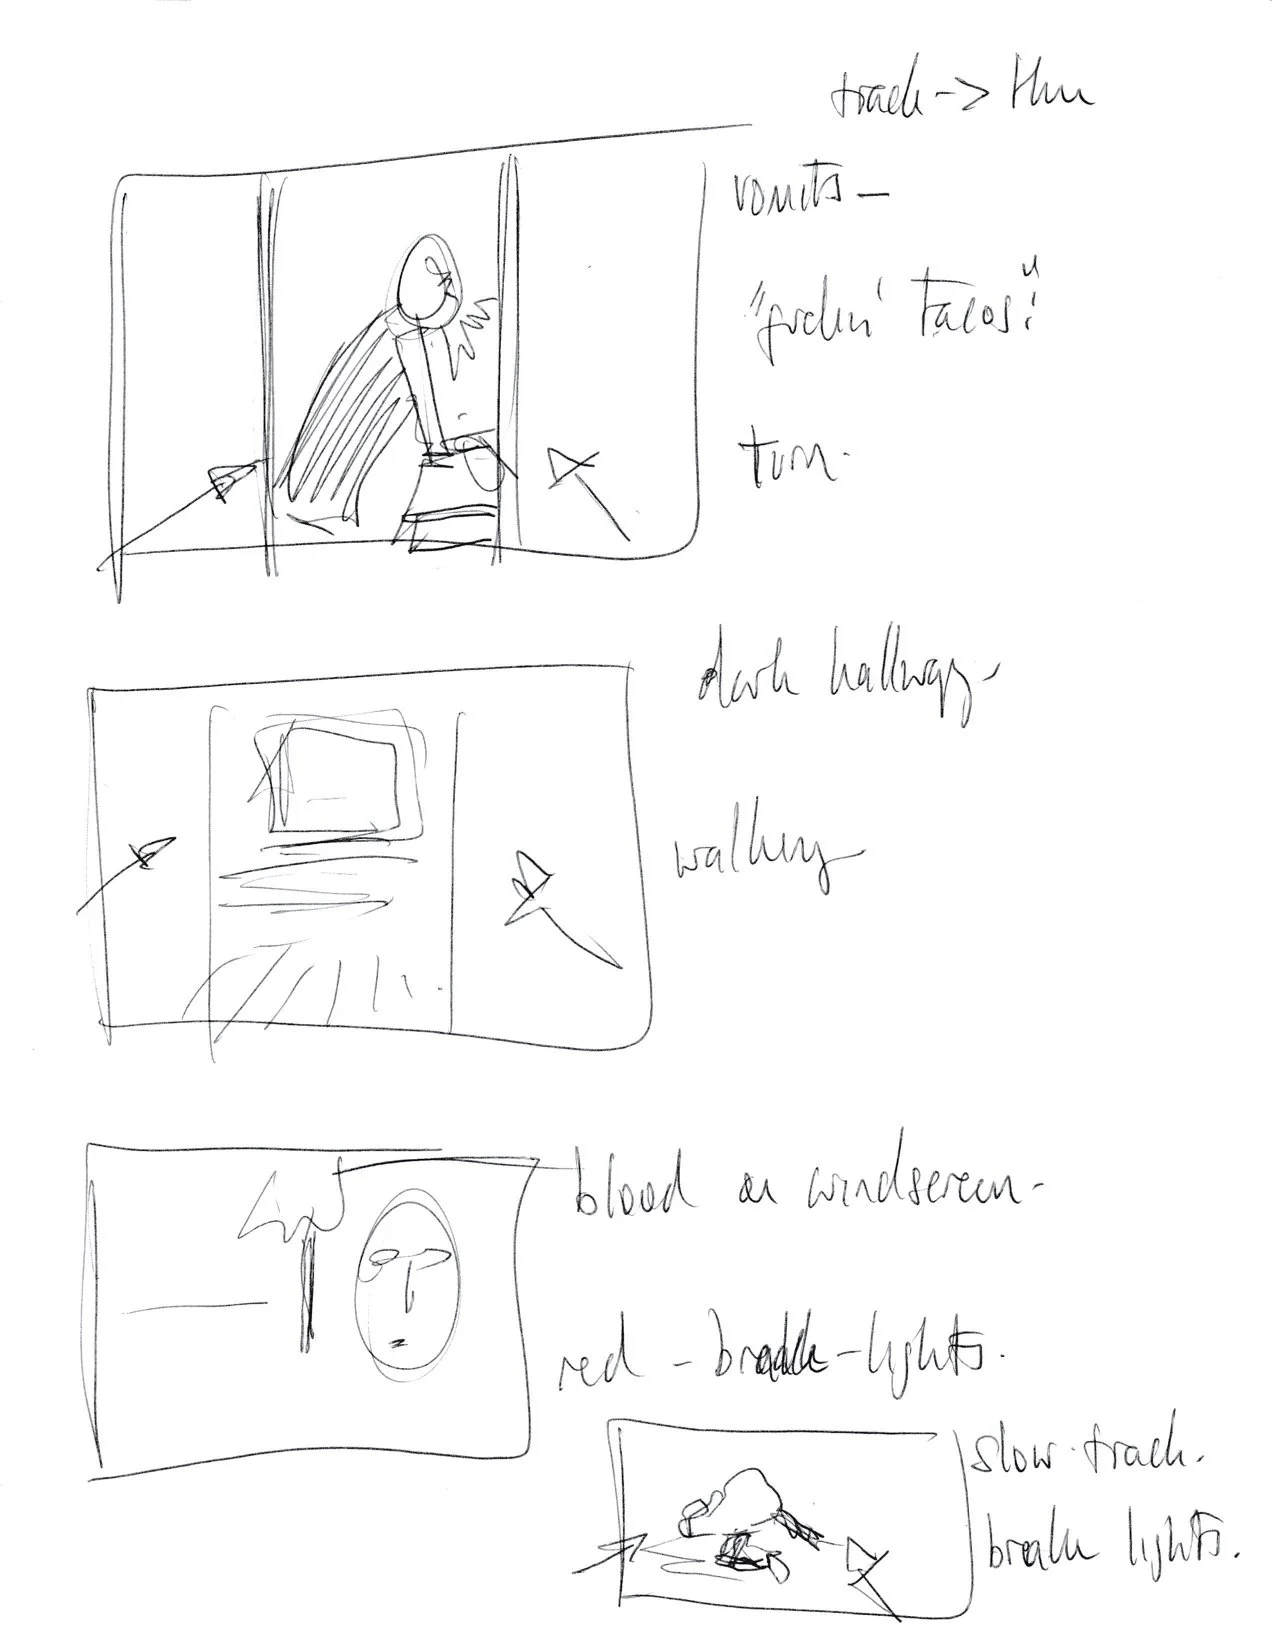 track -> thru
vomits -
"fuckin' tacos!"
turn.
dark hallway -
walking
blood on windscreen -
red - break - lights.
slow track.
break lights.